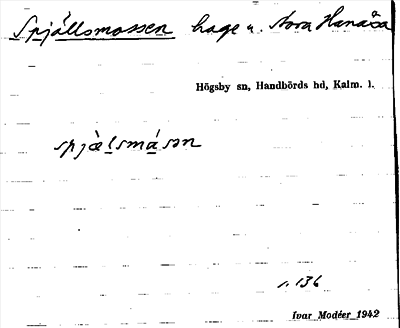 Spjällsmossen hage u. Nora Hanåsa
Högsby sn, Handbörds hd, Kalm. l.
spjæ̀lsmásən
s. 136
Ivar Modéer 1942